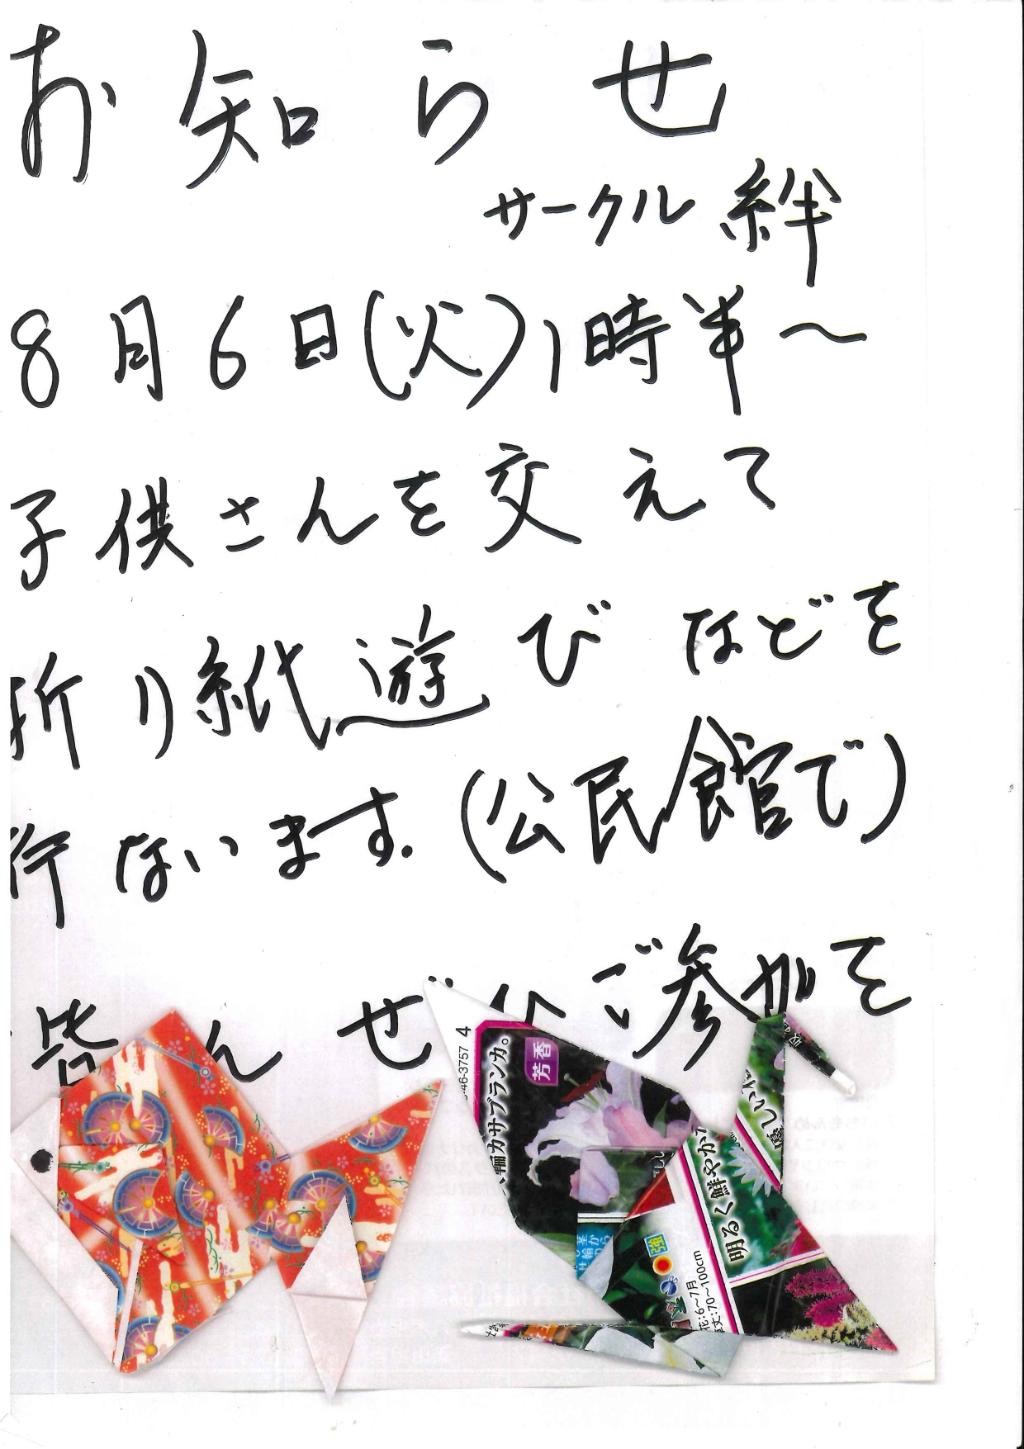 お知らせ
サークル 絆
8月6日(火)1時半～
子供さんを交えて
折り紙遊びなどを
行ないます.(公民館で)
皆さん ぜひご参加を
46-3757 4
輪カサブランカ。
芳香
強
花:6~7月
丈:70~100cm
明るく鮮やか
優しい